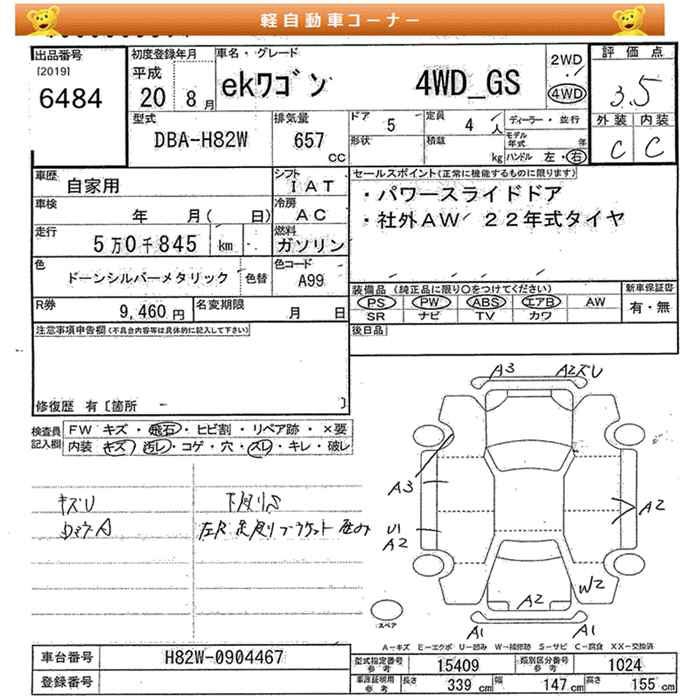 軽自動車コーナー
出品番号
[2019]
6484
初度登録年月
平成
20 8 月
車名・グレード
ekワゴン 4WD_GS
2WD
4WD
評価点
3.5
外装 内装
C C
型式
DBA-H82W
排気量
657
cc
ドア 5
定員 4 人
形状
積載 kg
ディーラー・並行
モデル年式 年
ハンドル 左・右
車歴
自家用
シフト
IAT
車検
年 月( 日)
冷房
AC
走行
5万0千845 km
燃料
ガソリン
色
ドーンシルバーメタリック 色替
色コード
A99
セールスポイント(正常に機能するものに限ります)
・パワースライドドア
・社外AW 22年式タイヤ
装備品(純正品に限り○をつけてください)
PS PW ABS エアB AW
SR ナビ TV カワ
新車保証書
有・無
R券
9,460 円
名変期限
月 日
後日品
注意事項申告欄(不具合内容等は具体的に記入して下さい)
修復歴 有〔箇所 〕
検査員記入欄
FW キズ・飛石・ヒビ割・リペア跡・×要
内装 キズ・汚レ・コゲ・穴・スレ・キレ・破レ
キズU
下廻りS
A3
A2
A3
U1
A2
A2
W2
A2
A1
A1
スペア
A-キズ E-エクボ U-凹み W-補修跡 S-サビ C-腐食 XX-交換済
車台番号
H82W-0904467
登録番号
型式指定番号
参考
15409
類別区分番号
参考
1024
車庫証明用
参考
長さ 339 cm
幅 147 cm
高さ 155 cm